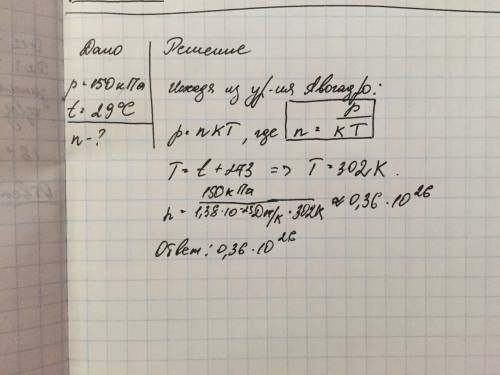 Дано
p = 150 кПа
t = 29°C
n - ?
Решение
Исходя из ур-ия Авогадро:
p = nkT, где n = p / kT
T = t + 273 => T = 302 К.
n = 150 кПа / 1,38 · 10⁻²³ Дж/К · 302К ≈ 0,36 · 10²⁶
Ответ: 0,36 · 10²⁶